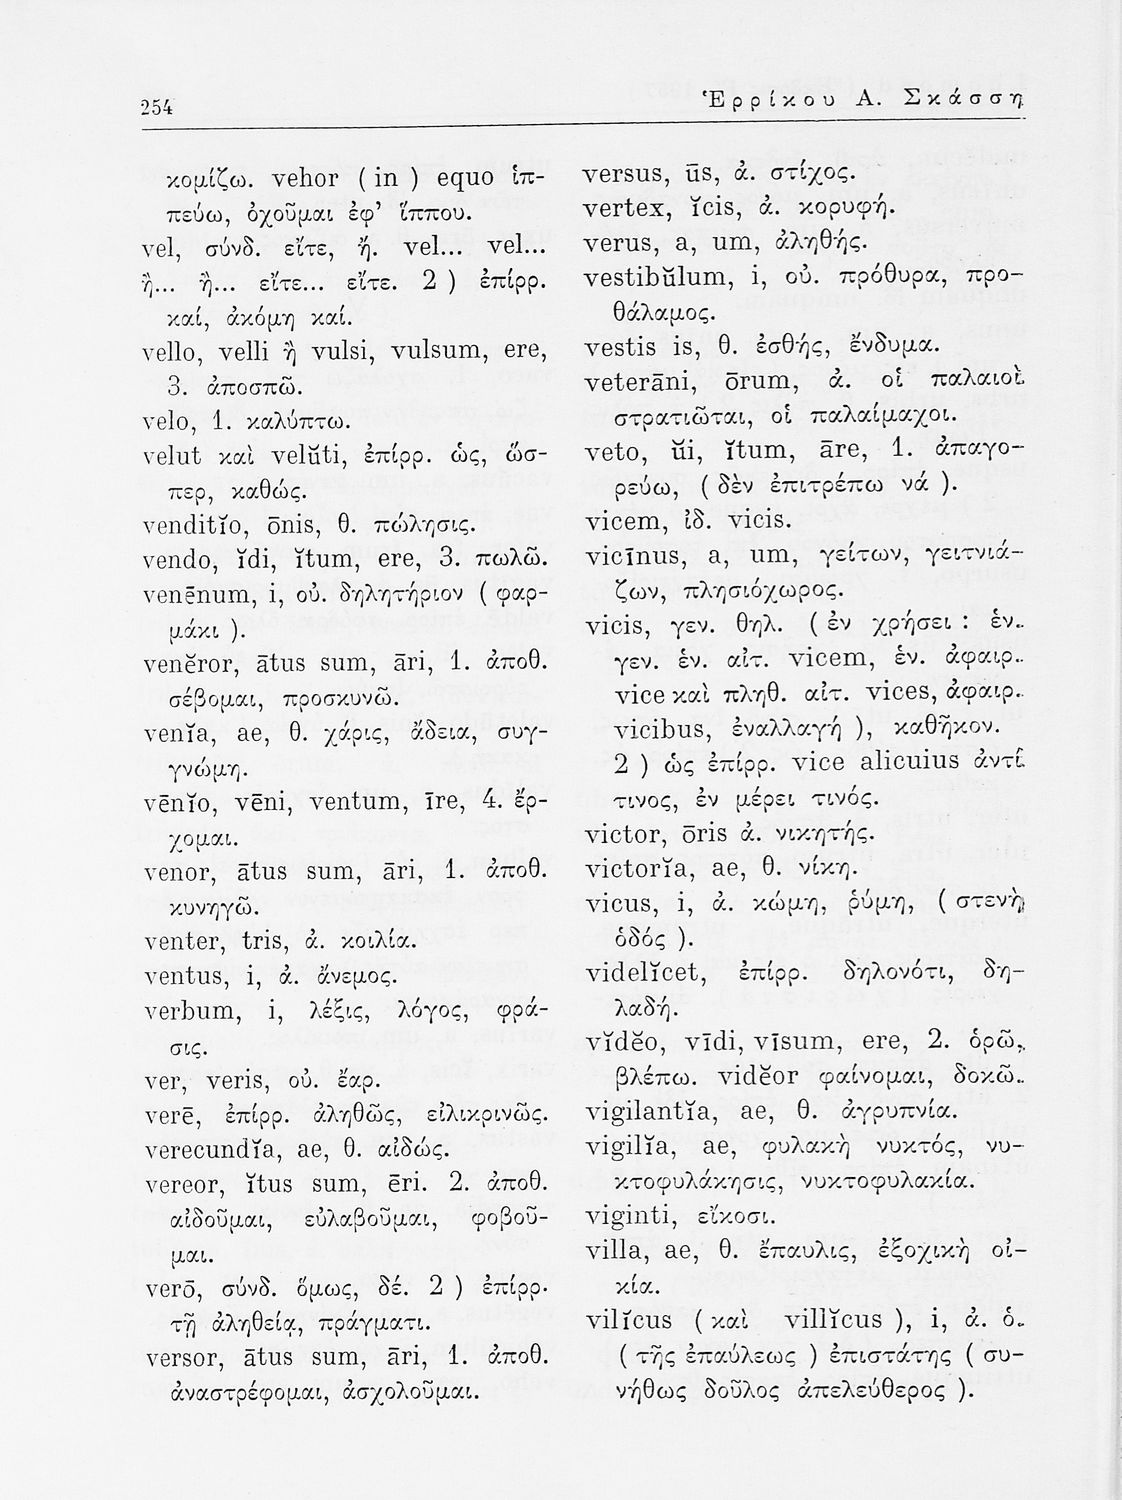 254
Ἑρρίκου Α. Σκάσση
κομίζω. vehor ( in ) equo ἱπ-
πεύω, ὀχοῦμαι ἐφ’ ἵππου.
vel, σύνδ. εἴτε, ἤ. vel... vel...
ἢ... ἢ... εἴτε... εἴτε. 2 ) ἐπίρρ.
καί, ἀκόμη καί.
vello, velli ἢ vulsi, vulsum, ere,
3. ἀποσπῶ.
velo, 1. καλύπτω.
velut καὶ velŭti, ἐπίρρ. ὡς, ὥσ-
περ, καθώς.
venditĭo, ōnis, θ. πώλησις.
vendo, ĭdi, ĭtum, ere, 3. πωλῶ.
venēnum, i, οὐ. δηλητήριον ( φαρ-
μάκι ).
venĕror, ātus sum, āri, 1. ἀποθ.
σέβομαι, προσκυνῶ.
venĭa, ae, θ. χάρις, ἄδεια, συγ-
γνώμη.
vēnĭo, vēni, ventum, īre, 4. ἔρ-
χομαι.
venor, ātus sum, āri, 1. ἀποθ.
κυνηγῶ.
venter, tris, ἀ. κοιλία.
ventus, i, ἀ. ἄνεμος.
verbum, i, λέξις, λόγος, φρά-
σις.
ver, veris, οὐ. ἔαρ.
verē, ἐπίρρ. ἀληθῶς, εἰλικρινῶς.
verecundĭa, ae, θ. αἰδώς.
vereor, ĭtus sum, ēri. 2. ἀποθ.
αἰδοῦμαι, εὐλαβοῦμαι, φοβοῦ-
μαι.
verō, σύνδ. ὅμως, δέ. 2 ) ἐπίρρ.
τῇ ἀληθείᾳ, πράγματι.
versor, ātus sum, āri, 1. ἀποθ.
ἀναστρέφομαι, ἀσχολοῦμαι.
versus, ūs, ἀ. στίχος.
vertex, ĭcis, ἀ. κορυφή.
verus, a, um, ἀληθής.
vestibŭlum, i, οὐ. πρόθυρα, προ-
θάλαμος.
vestis is, θ. ἐσθής, ἔνδυμα.
veterāni, ōrum, ἀ. οἱ παλαιοὶ
στρατιῶται, οἱ παλαίμαχοι.
veto, ŭi, ĭtum, āre, 1. ἀπαγο-
ρεύω, ( δὲν ἐπιτρέπω νά ).
vicem, ἰδ. vicis.
vicīnus, a, um, γείτων, γειτνιά-
ζων, πλησιόχωρος.
vicis, γεν. θηλ. ( ἐν χρήσει : ἑν.
γεν. ἑν. αἰτ. vicem, ἑν. ἀφαιρ.
vice καὶ πληθ. αἰτ. vices, ἀφαιρ.
vicibus, ἐναλλαγή ), καθῆκον.
2 ) ὡς ἐπίρρ. vice alicuius ἀντί
τινος, ἐν μέρει τινός.
victor, ōris ἀ. νικητής.
victorĭa, ae, θ. νίκη.
vicus, i, ἀ. κώμη, ῥύμη, ( στενὴ
ὁδός ).
videlĭcet, ἐπίρρ. δηλονότι, δη-
λαδή.
vĭdĕo, vīdi, vīsum, ere, 2. ὁρῶ,
βλέπω. vidĕor φαίνομαι, δοκῶ.
vigilantĭa, ae, θ. ἀγρυπνία.
vigilĭa, ae, φυλακὴ νυκτός, νυ-
κτοφυλάκησις, νυκτοφυλακία.
viginti, εἴκοσι.
villa, ae, θ. ἔπαυλις, ἐξοχικὴ οἰ-
κία.
vilĭcus ( καὶ villĭcus ), i, ἀ. ὁ
( τῆς ἐπαύλεως ) ἐπιστάτης ( συ-
νήθως δοῦλος ἀπελεύθερος ).